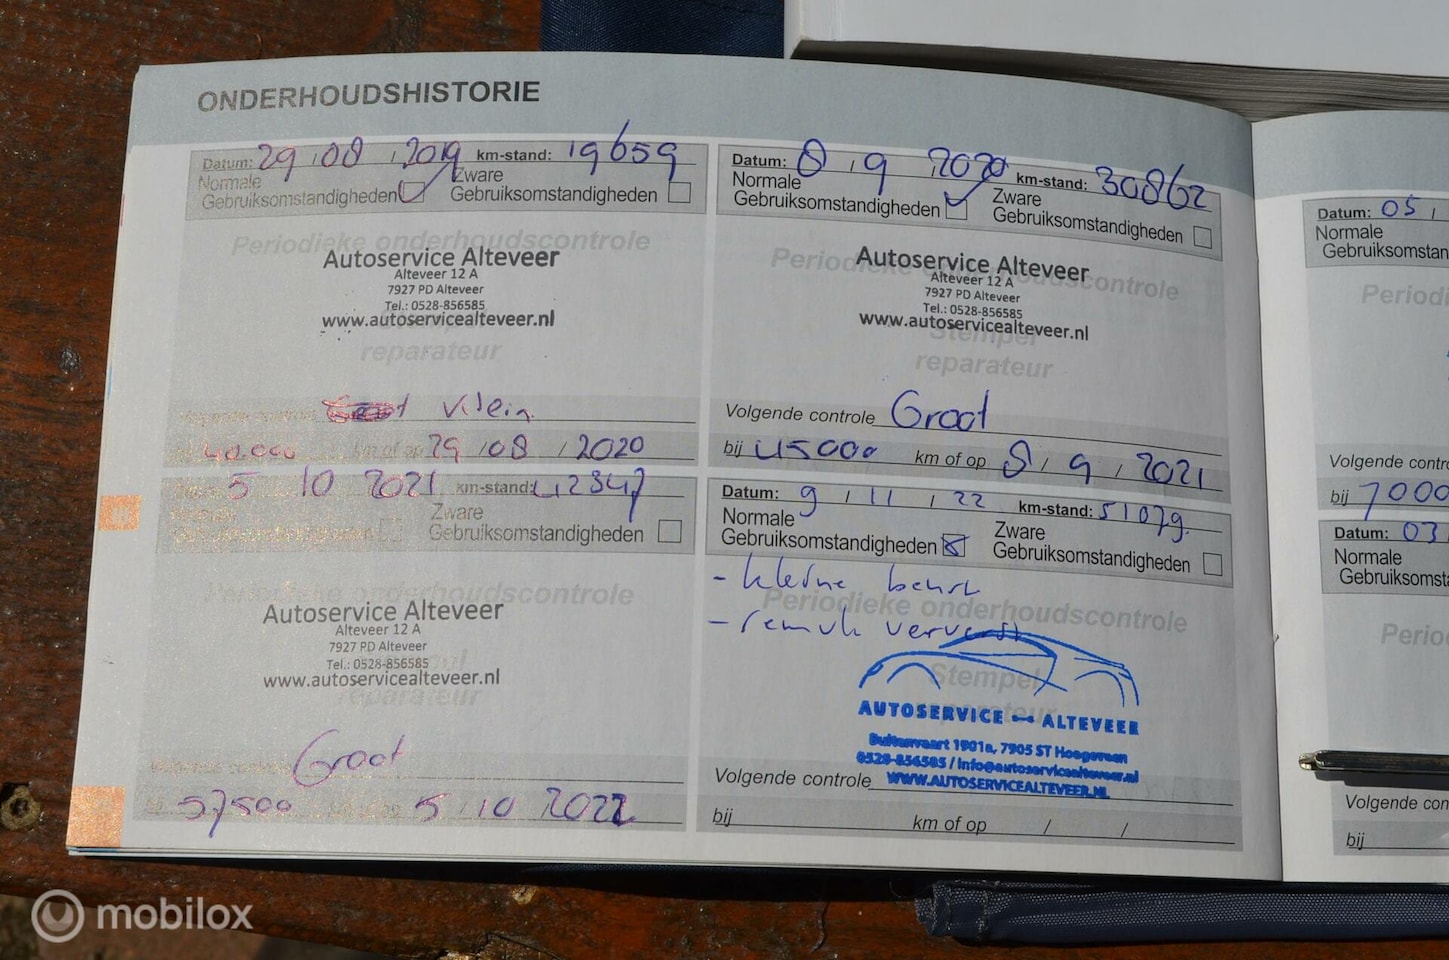 ONDERHOUDSHISTORIE
Datum: 29 / 08 / 2019 km-stand: 19659
Normale Zware
Gebruiksomstandigheden Gebruiksomstandigheden
Periodieke onderhoudscontrole
Autoservice Alteveer
Alteveer 12 A
7927 PD Alteveer
Tel.: 0528-856585
www.autoservicealteveer.nl
reparateur
Klein
40.000 km of op 29 / 08 / 2020
Datum: 8 / 9 / 2020 km-stand: 30862
Normale Zware
Gebruiksomstandigheden Gebruiksomstandigheden
Periodieke onderhoudscontrole
Autoservice Alteveer
Alteveer 12 A
7927 PD Alteveer
Tel.: 0528-856585
www.autoservicealteveer.nl
Stempel
reparateur
Volgende controle Groot
bij 45000 km of op 8 / 9 / 2021
5 10 2021 km-stand: 42347
Zware
Gebruiksomstandigheden Gebruiksomstandigheden
Periodieke onderhoudscontrole
Autoservice Alteveer
Alteveer 12 A
7927 PD Alteveer
Tel.: 0528-856585
www.autoservicealteveer.nl
reparateur
Volgende controle Groot
57500 5 / 10 2022
Datum: 9 / 11 / 22 km-stand: 51079
Normale Zware
Gebruiksomstandigheden Gebruiksomstandigheden
- kleine beurt
Periodieke onderhoudscontrole
- remvl ververst
Stempel
reparateur
AUTOSERVICE ALTEVEER
Buitenvaart 1901a, 7905 ST Hoogeveen
0528-856585 / info@autoservicealteveer.nl
WWW.AUTOSERVICEALTEVEER.NL
Volgende controle
bij km of op / /
Datum: 05 /
Normale
Gebruiksomstan
Periodi
Volgende contr
bij 7000
Datum: 03
Normale
Gebruiksomsta
Period
Volgende con
bij
mobilox